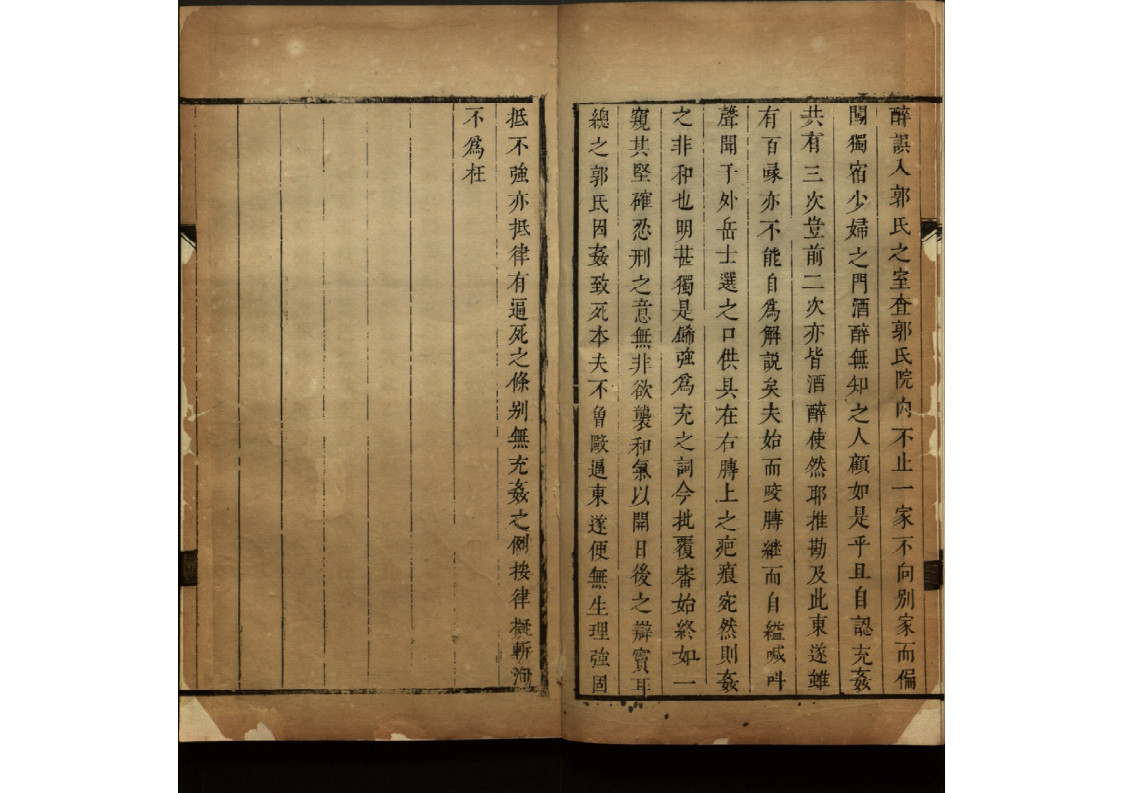 醉誤入郭氏之室查郭氏院內不止一家不向別家而偏
闖獨宿少婦之門酒醉無知之人顧如是乎且自認充姦
共有三次豈前二次亦皆酒醉使然耶推勘及此東遂雖
有百喙亦不能自爲解說矣夫始而咬膊繼而自縊喊呌
聲聞于外岳士選之口供具在右膊上之疤痕宛然則姦
之非和也明甚獨是餙強爲充之詞今批覆審始終如一
窺其堅確忍刑之意無非欲襲和氣以開日後之辯竇耳
總之郭氏因姦致死本夫不曾毆逼東遂便無生理強固
抵不強亦抵律有逼死之條別無充姦之例按律擬斬洵
不爲枉